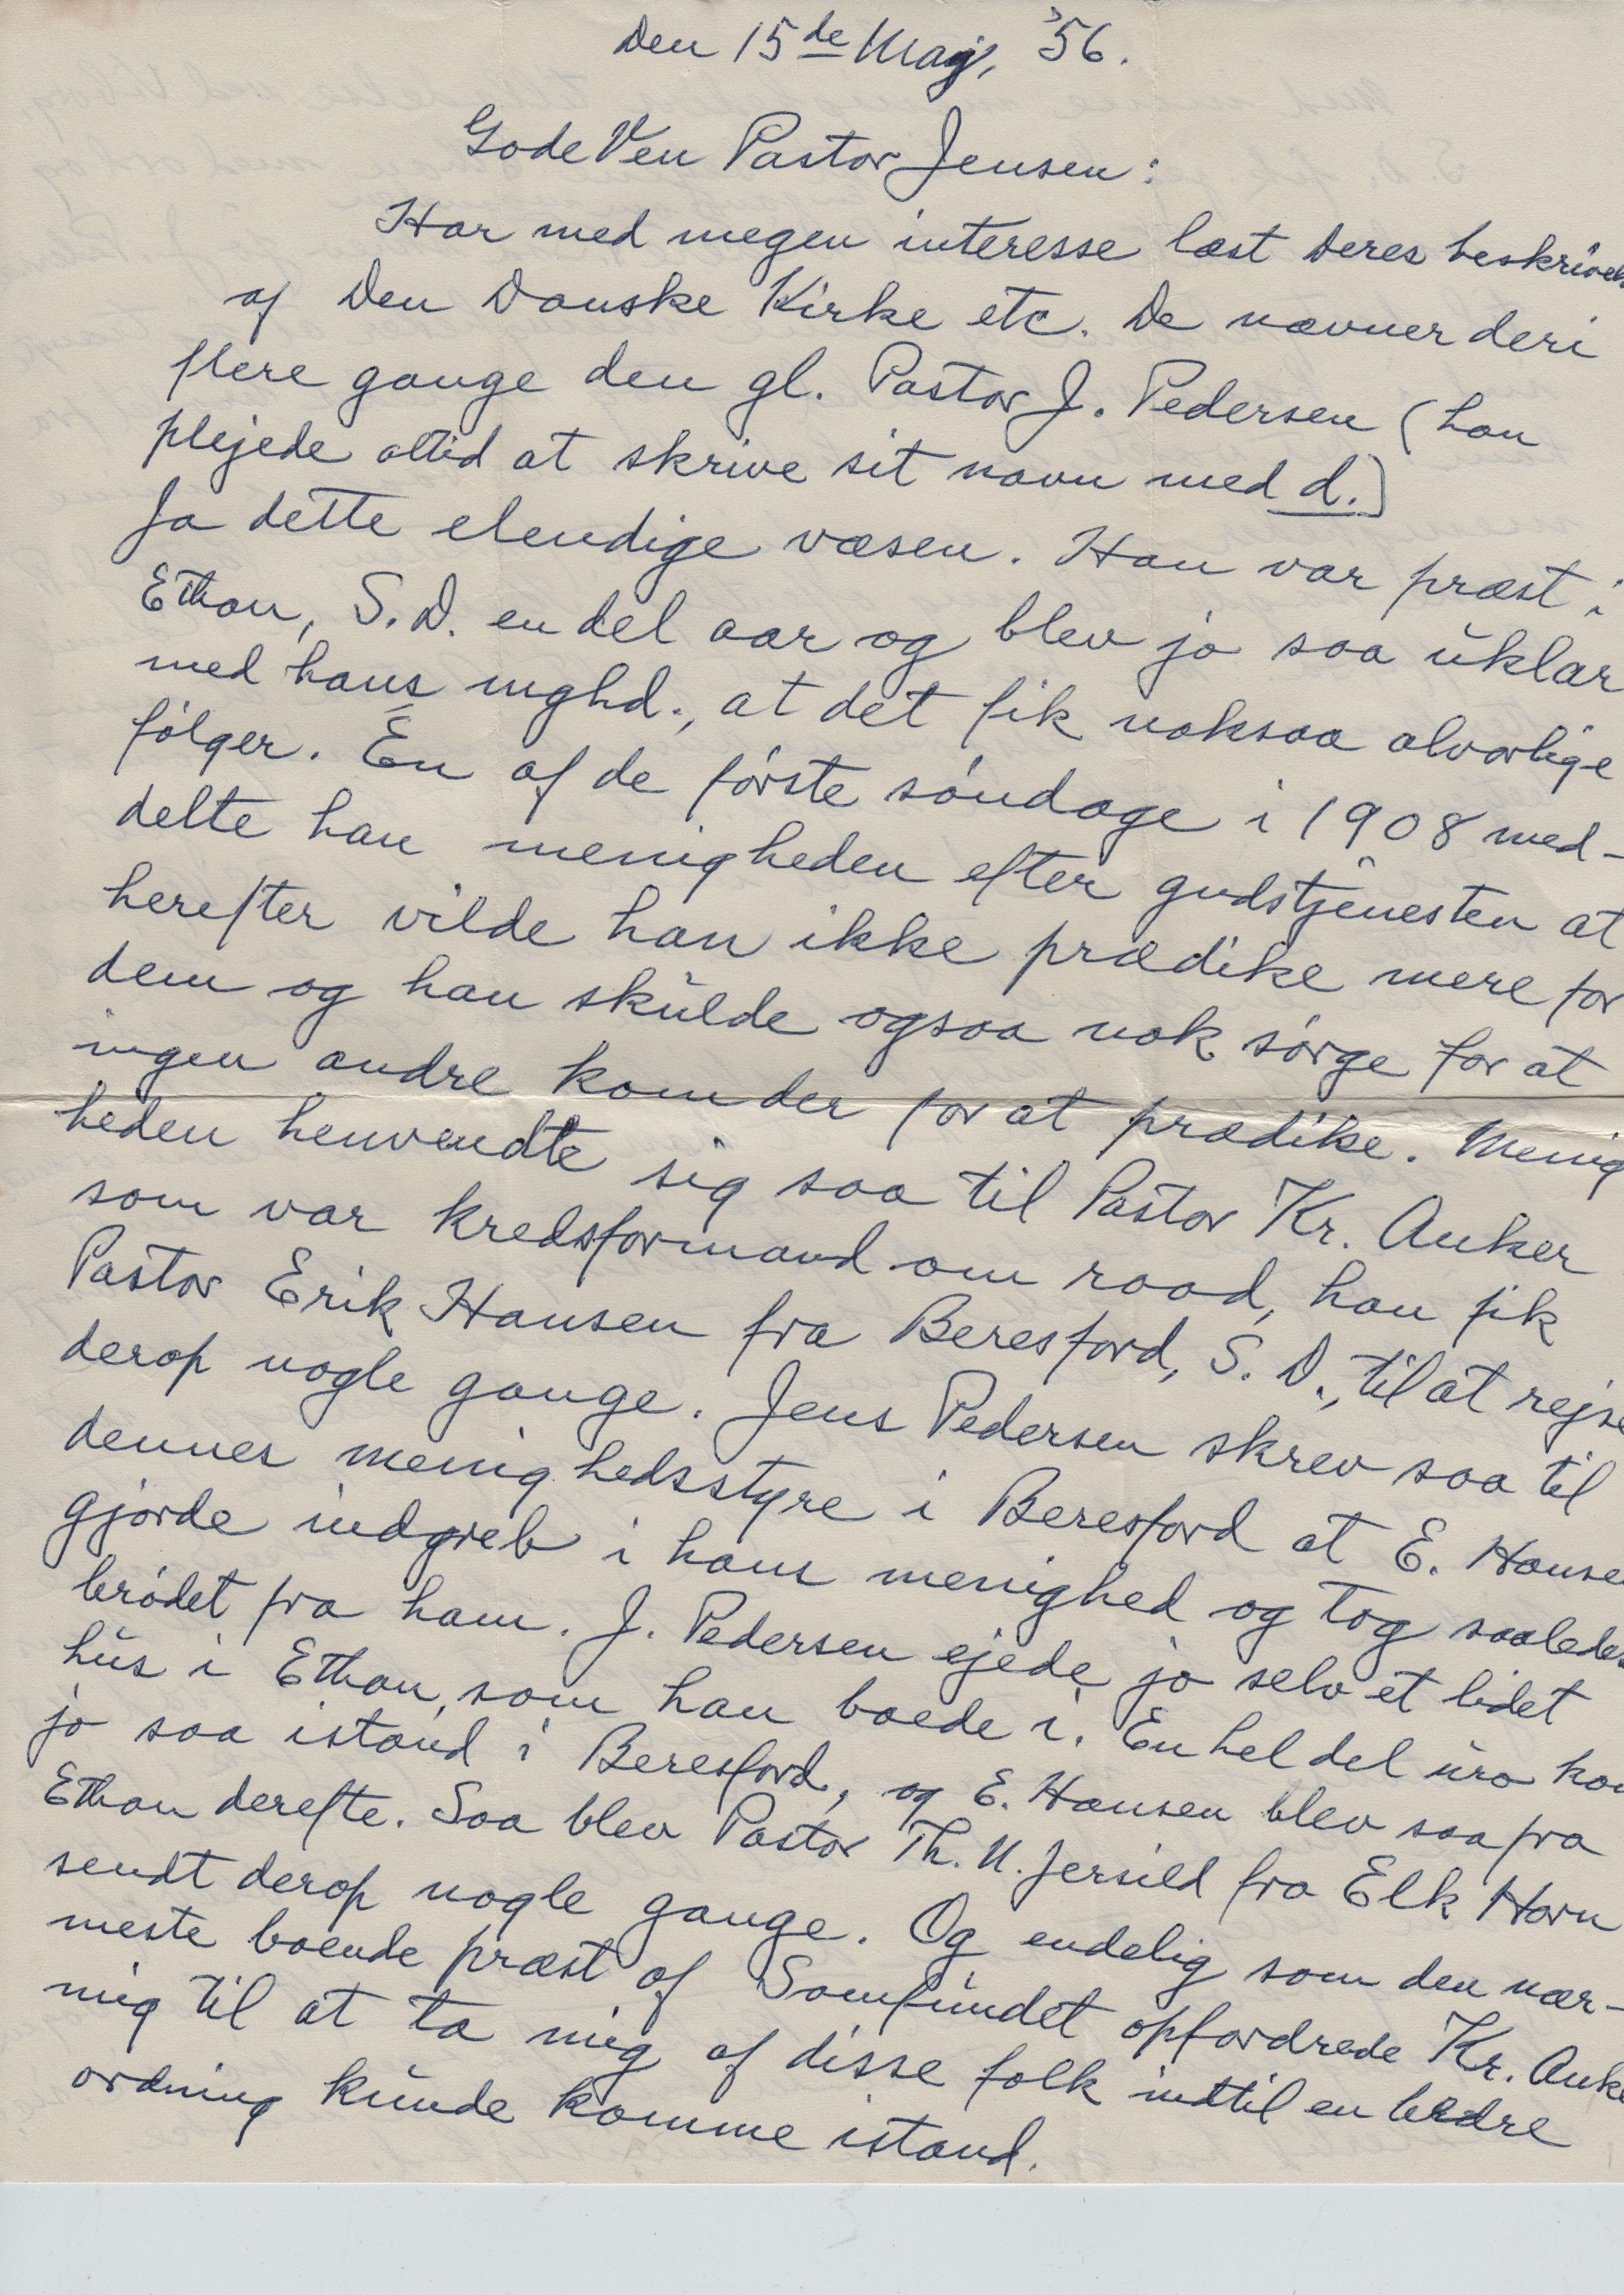 Den 15de Maj, '56.
Gode Ven Pastor Jensen:
Har med megen interesse læst Deres beskrivels
af Den Danske Kirke etc. De nævner deri
flere gange den gl. Pastor J. Pedersen (han
plejede altid at skrive sit navn med d.)
Ja dette elendige væsen. Han var præst i
Ethan, S.D. en del aar og blev jo saa uklar
med hans mghd., at det fik noksaa alvorlige
følger. En af de første søndage i 1908 med-
delte han menigheden efter gudstjenesten at
herefter vilde han ikke prædike mere for
dem og han skulde ogsaa nok sørge for at
ingen andre kom der for at prædike. Menig
heden henvendte sig saa til Pastor Kr. Anker
som var kredsformand om raad, han fik
Pastor Erik Hansen fra Beresford, S. D., til at rejse
derop nogle gange. Jens Pedersen skrev saa til
dennes menighedsstyre i Beresford at E. Hanse
gjorde indgreb i hans menighed og tog saaledes
brødet fra ham. J. Pedersen ejede jo selv et lidet
hus i Ethan, som han boede i. En hel del uro kom
jo saa istand i Beresford, og E. Hansen blev saa fra
Ethan derefte. Saa blev Pastor Th. N. Jersild fra Elk Horn
sendt derop nogle gange. Og endelig som den nær-
meste boende præst af Samfundet opfordrede Kr. Anke
mig til at ta mig af disse folk indtil en bedre
ordning kunde komme istand.